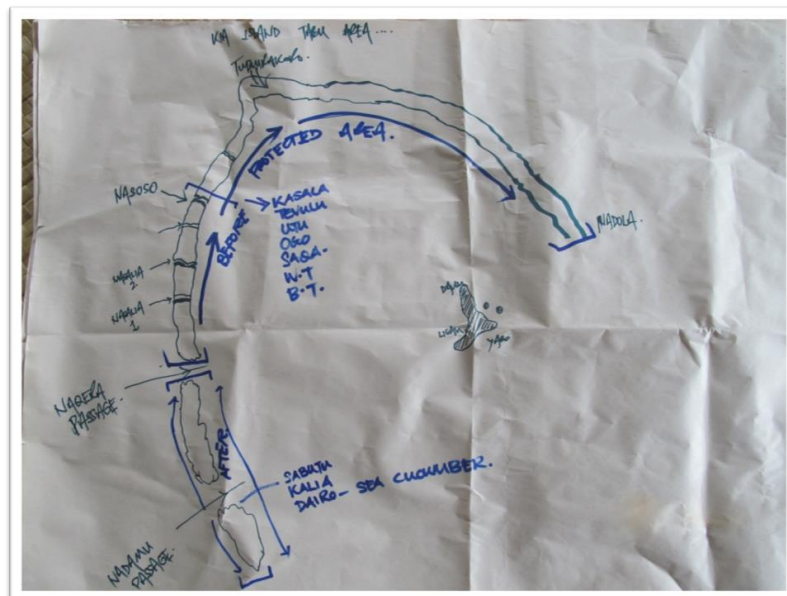 KIA ISLAND TABU AREA....
PROTECTED AREA.
NASOSO
BEFORE
KASALA
TENULU
UTU
OGO
SAQA.
W.T
B.T.
NADOLA.
2
1
DAKU
LIGAU
YARO
NAQERA
PASSAGE.
AFTER.
SABUTU
KALIA
DAIRO- SEA CUCUMBER.
NADAMU
PASSAGE.